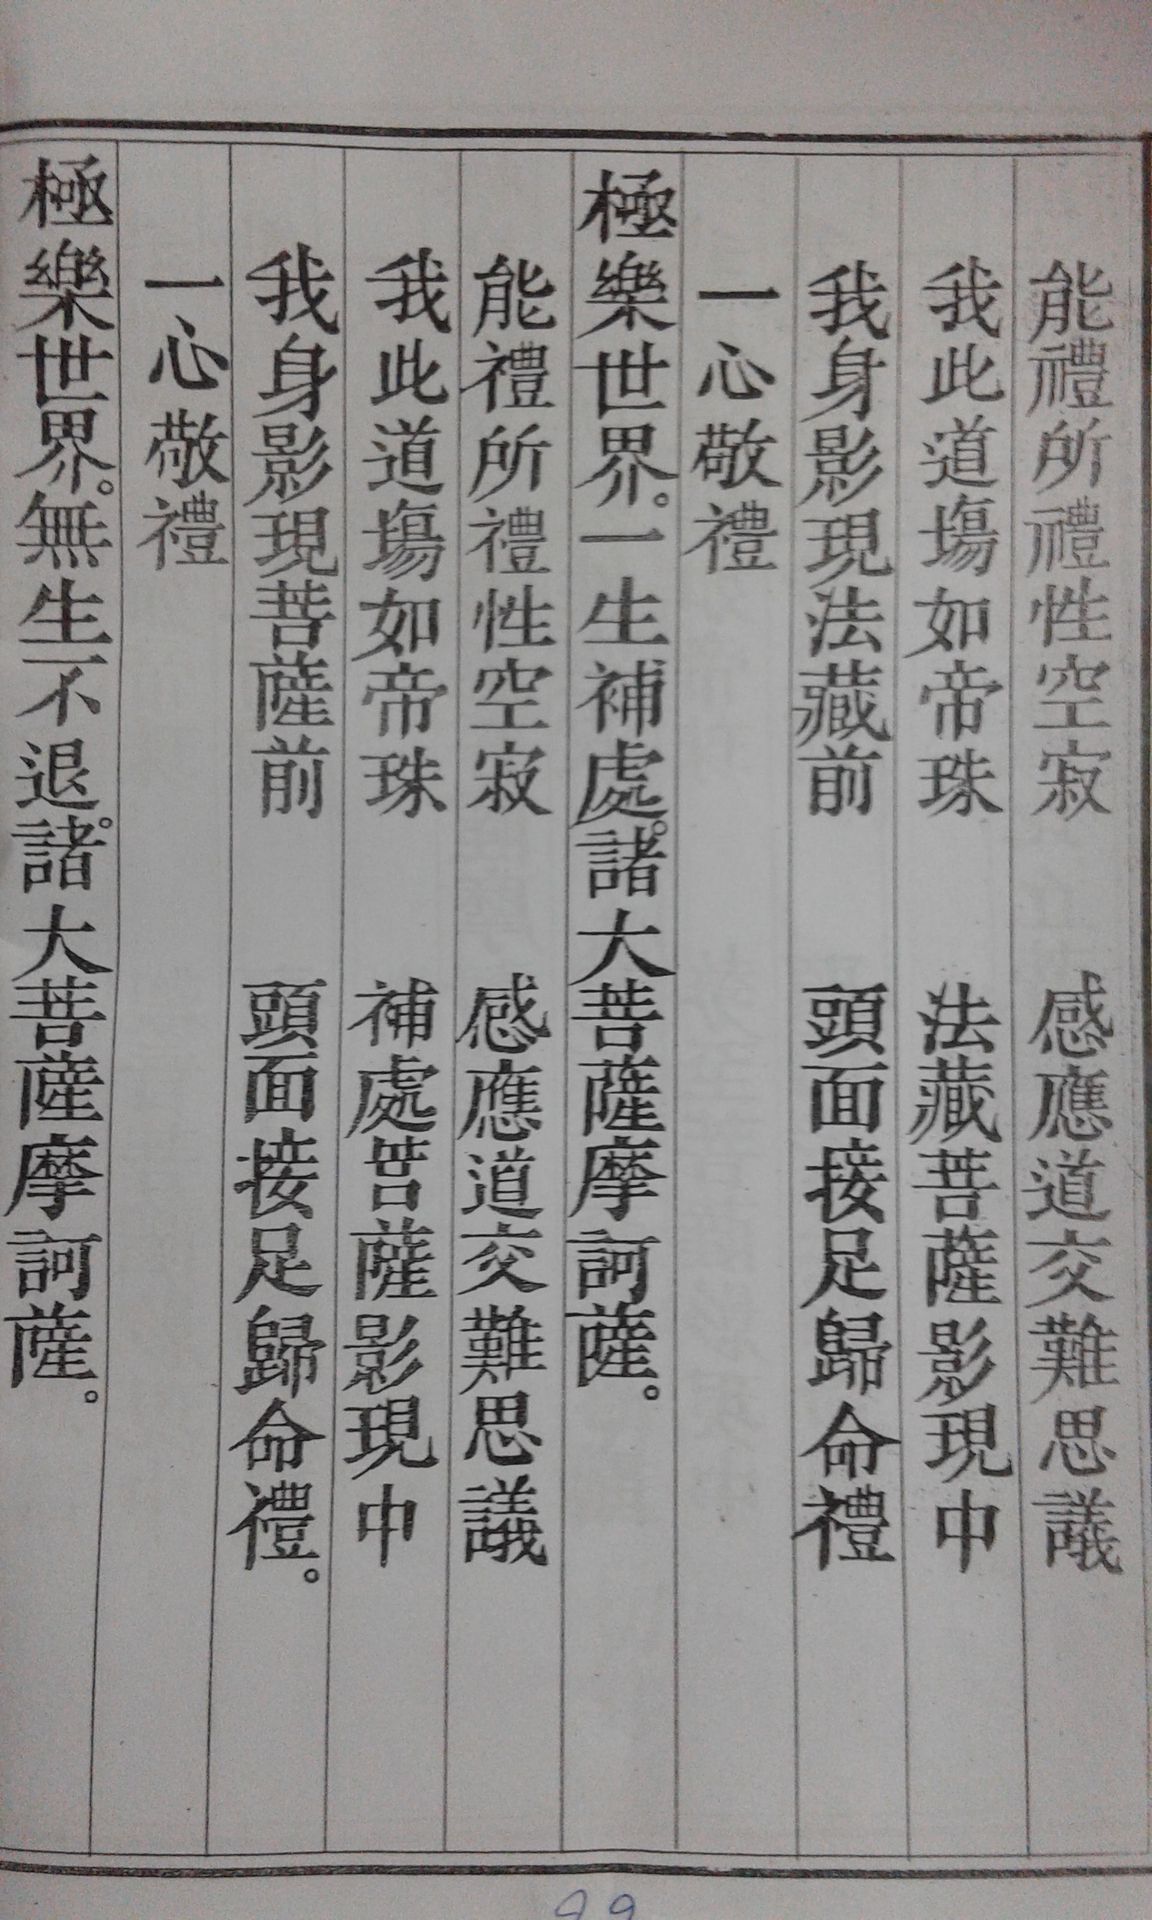 能禮所禮性空寂　感應道交難思議
我此道塲如帝珠　法藏菩薩影現中
我身影現法藏前　頭面接足歸命禮
一心敬禮
極樂世界。一生補處。諸大菩薩摩訶薩。
能禮所禮性空寂　感應道交難思議
我此道塲如帝珠　補處菩薩影現中
我身影現菩薩前　頭面接足歸命禮。
一心敬禮
極樂世界。無生不退。諸大菩薩摩訶薩。